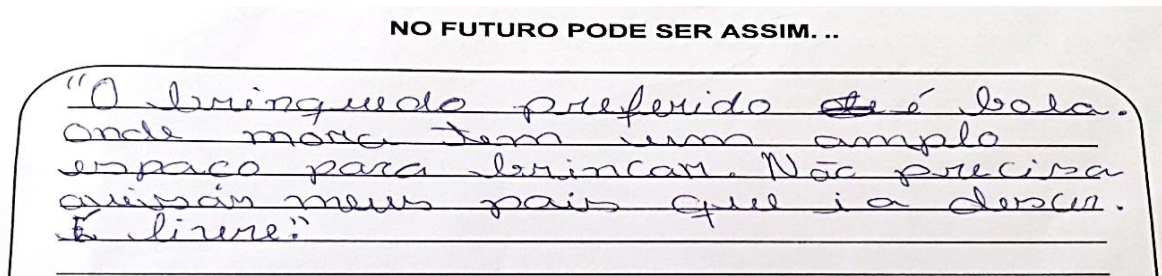 NO FUTURO PODE SER ASSIM. ..
"O brinquedo preferido é bola.
onde mora tem um amplo
espaço para brincar. Não precisa
avisar meus pais que ia descer.
É livre."